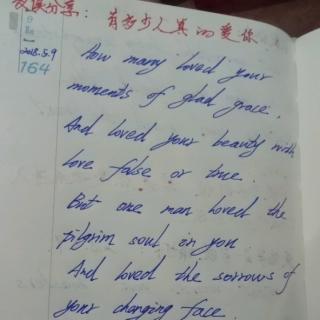 友谟分享：有多少人真的爱你
2018.5.9
164
How many loved your
moments of glad grace,
And loved your beauty with
love false or true.
But one man loved the
pilgrim soul in you
And loved the sorrows of
your changing face.